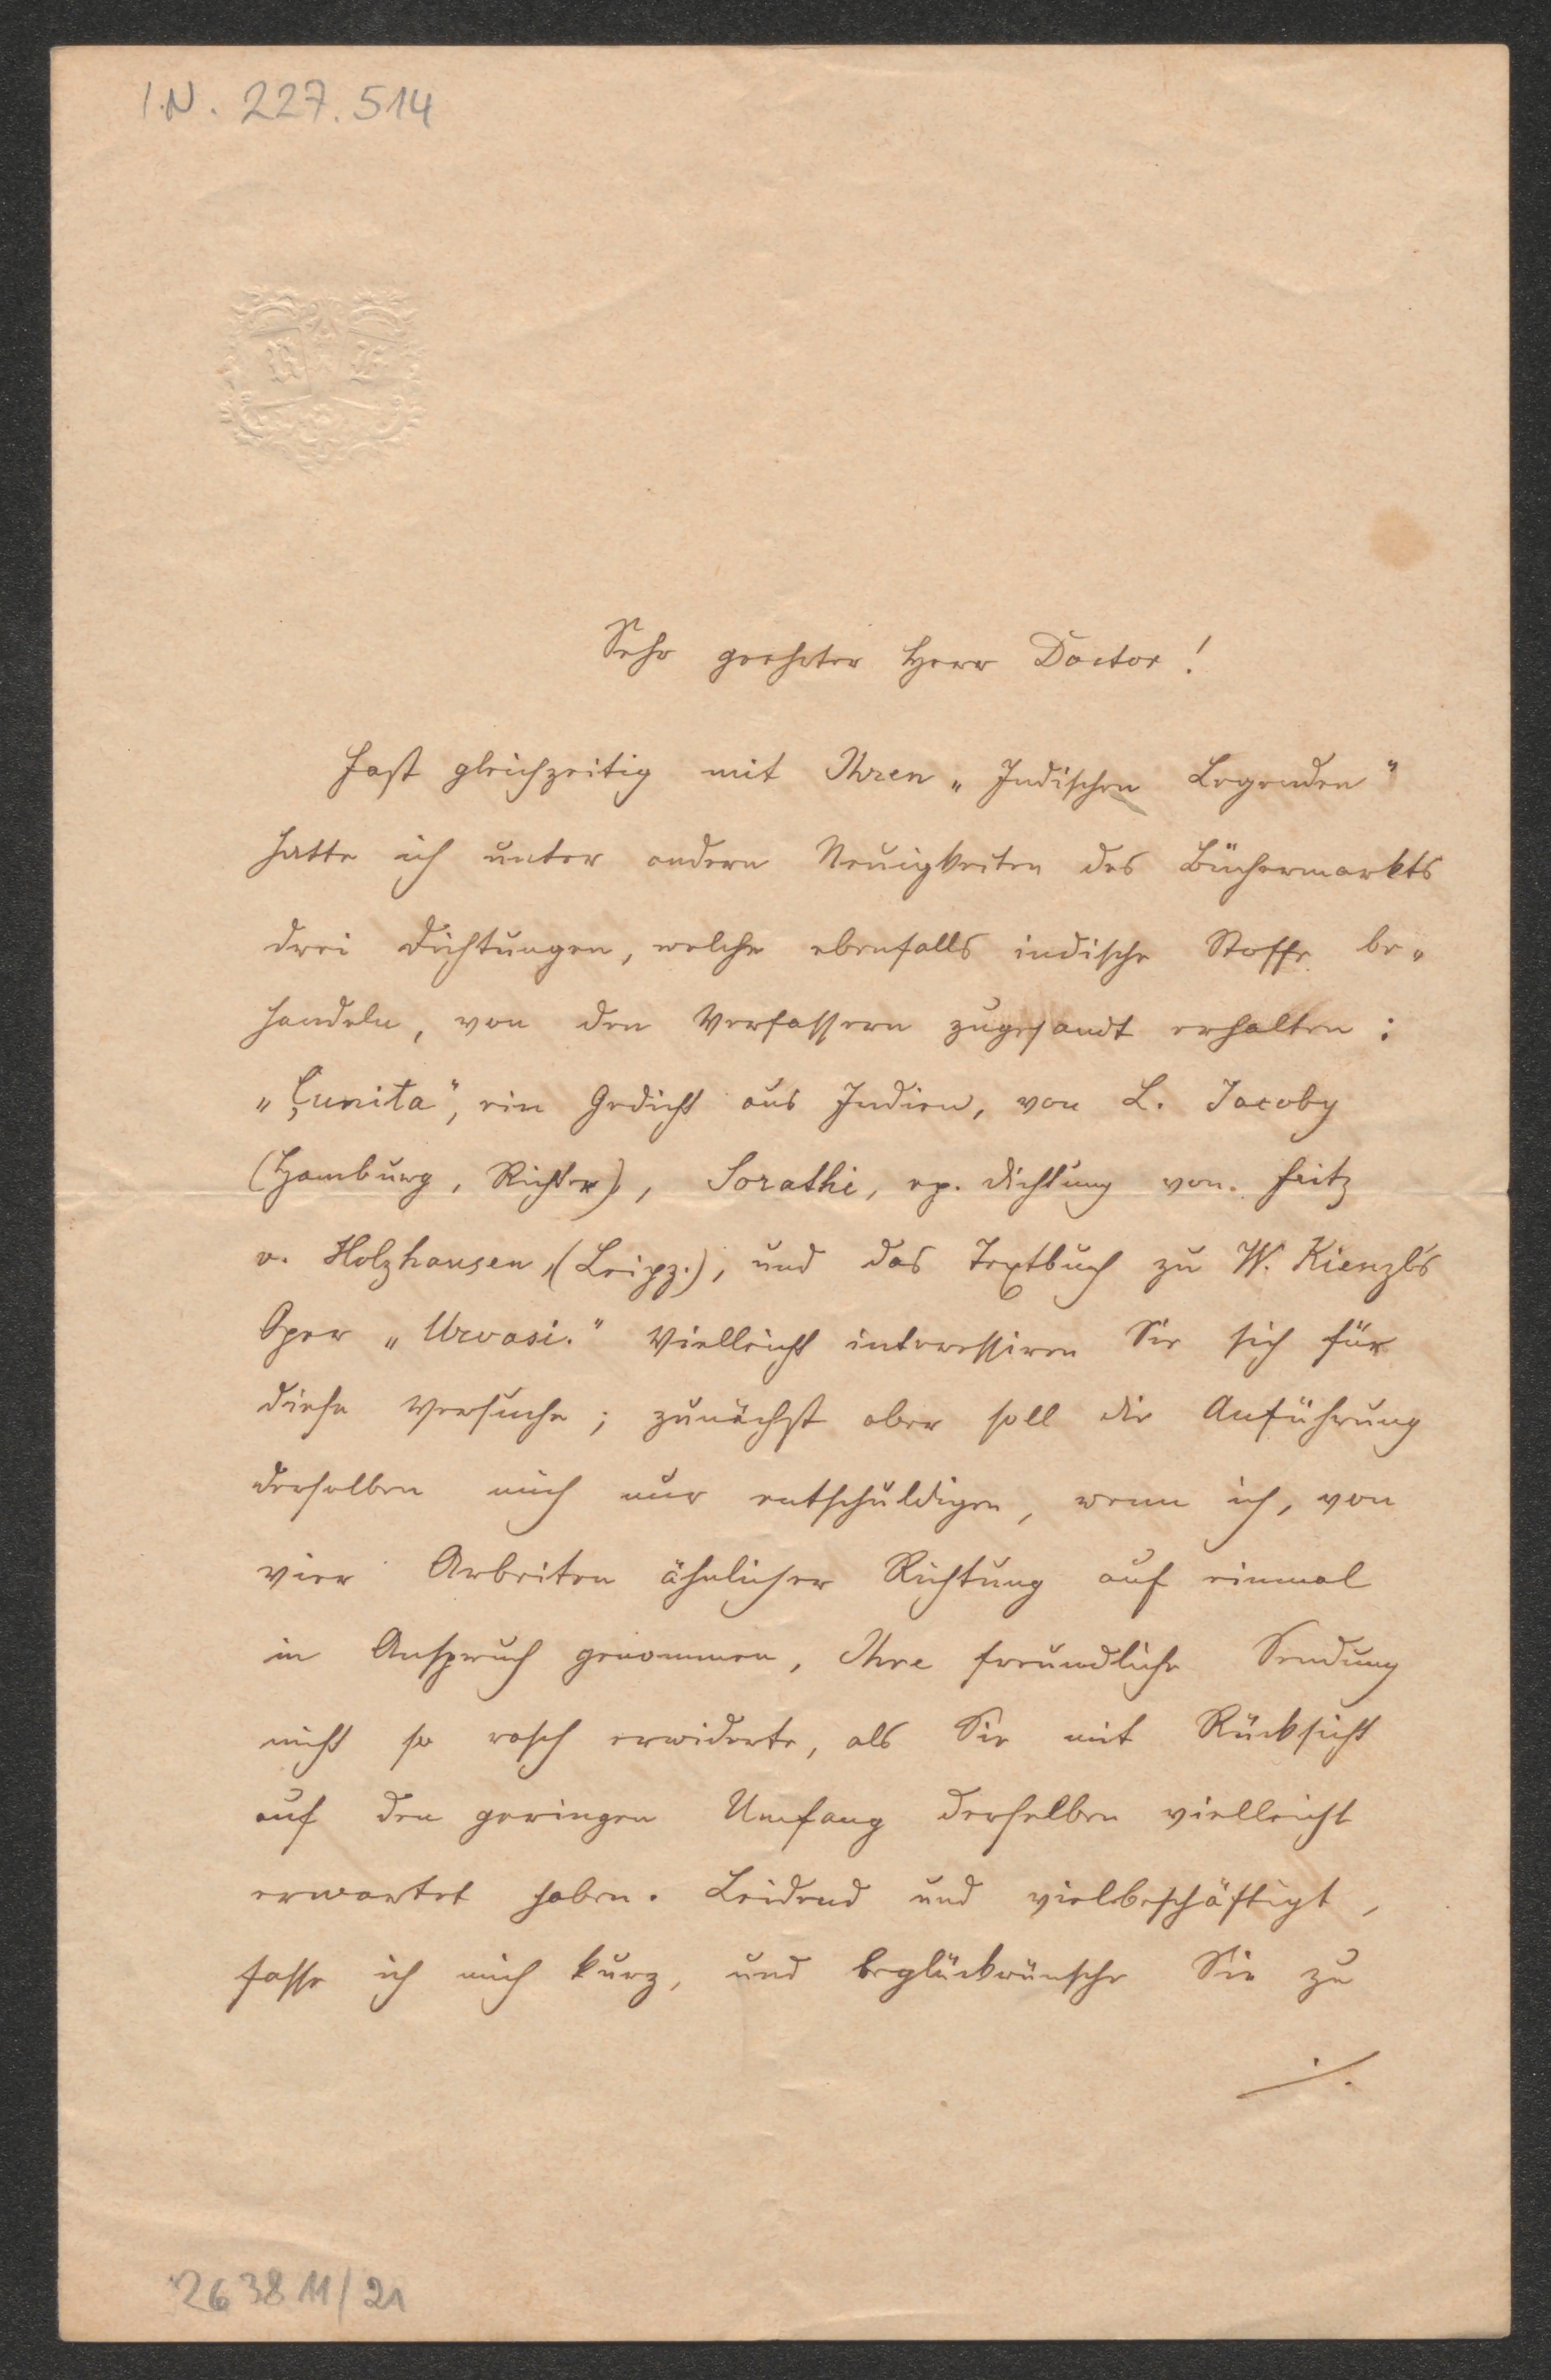 I.N. 227.514
Sehr geehrter Herr Doctor!
Fast gleichzeitig mit Ihren „Indischen Legenden"
hatte ich unter andern Neuigkeiten des Büchermarkts
drei Dichtungen, welche ebenfalls indische Stoffe be-
handeln, von den Verfassern zugesandt erhalten:
„Çunita", ein Gedicht aus Indien, von L. Jacoby
(Hamburg, Richter), Sorathi, ep. Dichtung von Fritz
v. Holzhausen, (Leipz.), und das Textbuch zu W. Kienzls
Oper „Urvasi." Vielleicht interessiren Sie sich für
diese Versuche; zunächst aber soll die Anführung
derselben mich nur entschuldigen, wenn ich, von
vier Arbeiten ähnlicher Richtung auf einmal
in Anspruch genommen, Ihre freundliche Sendung
nicht so rasch erwiderte, als Sie mit Rücksicht
auf den geringen Umfang derselben vielleicht
erwartet haben. Leidend und vielbeschäftigt,
fasse ich mich kurz, und beglückwünsche Sie zu
./.
263811/21